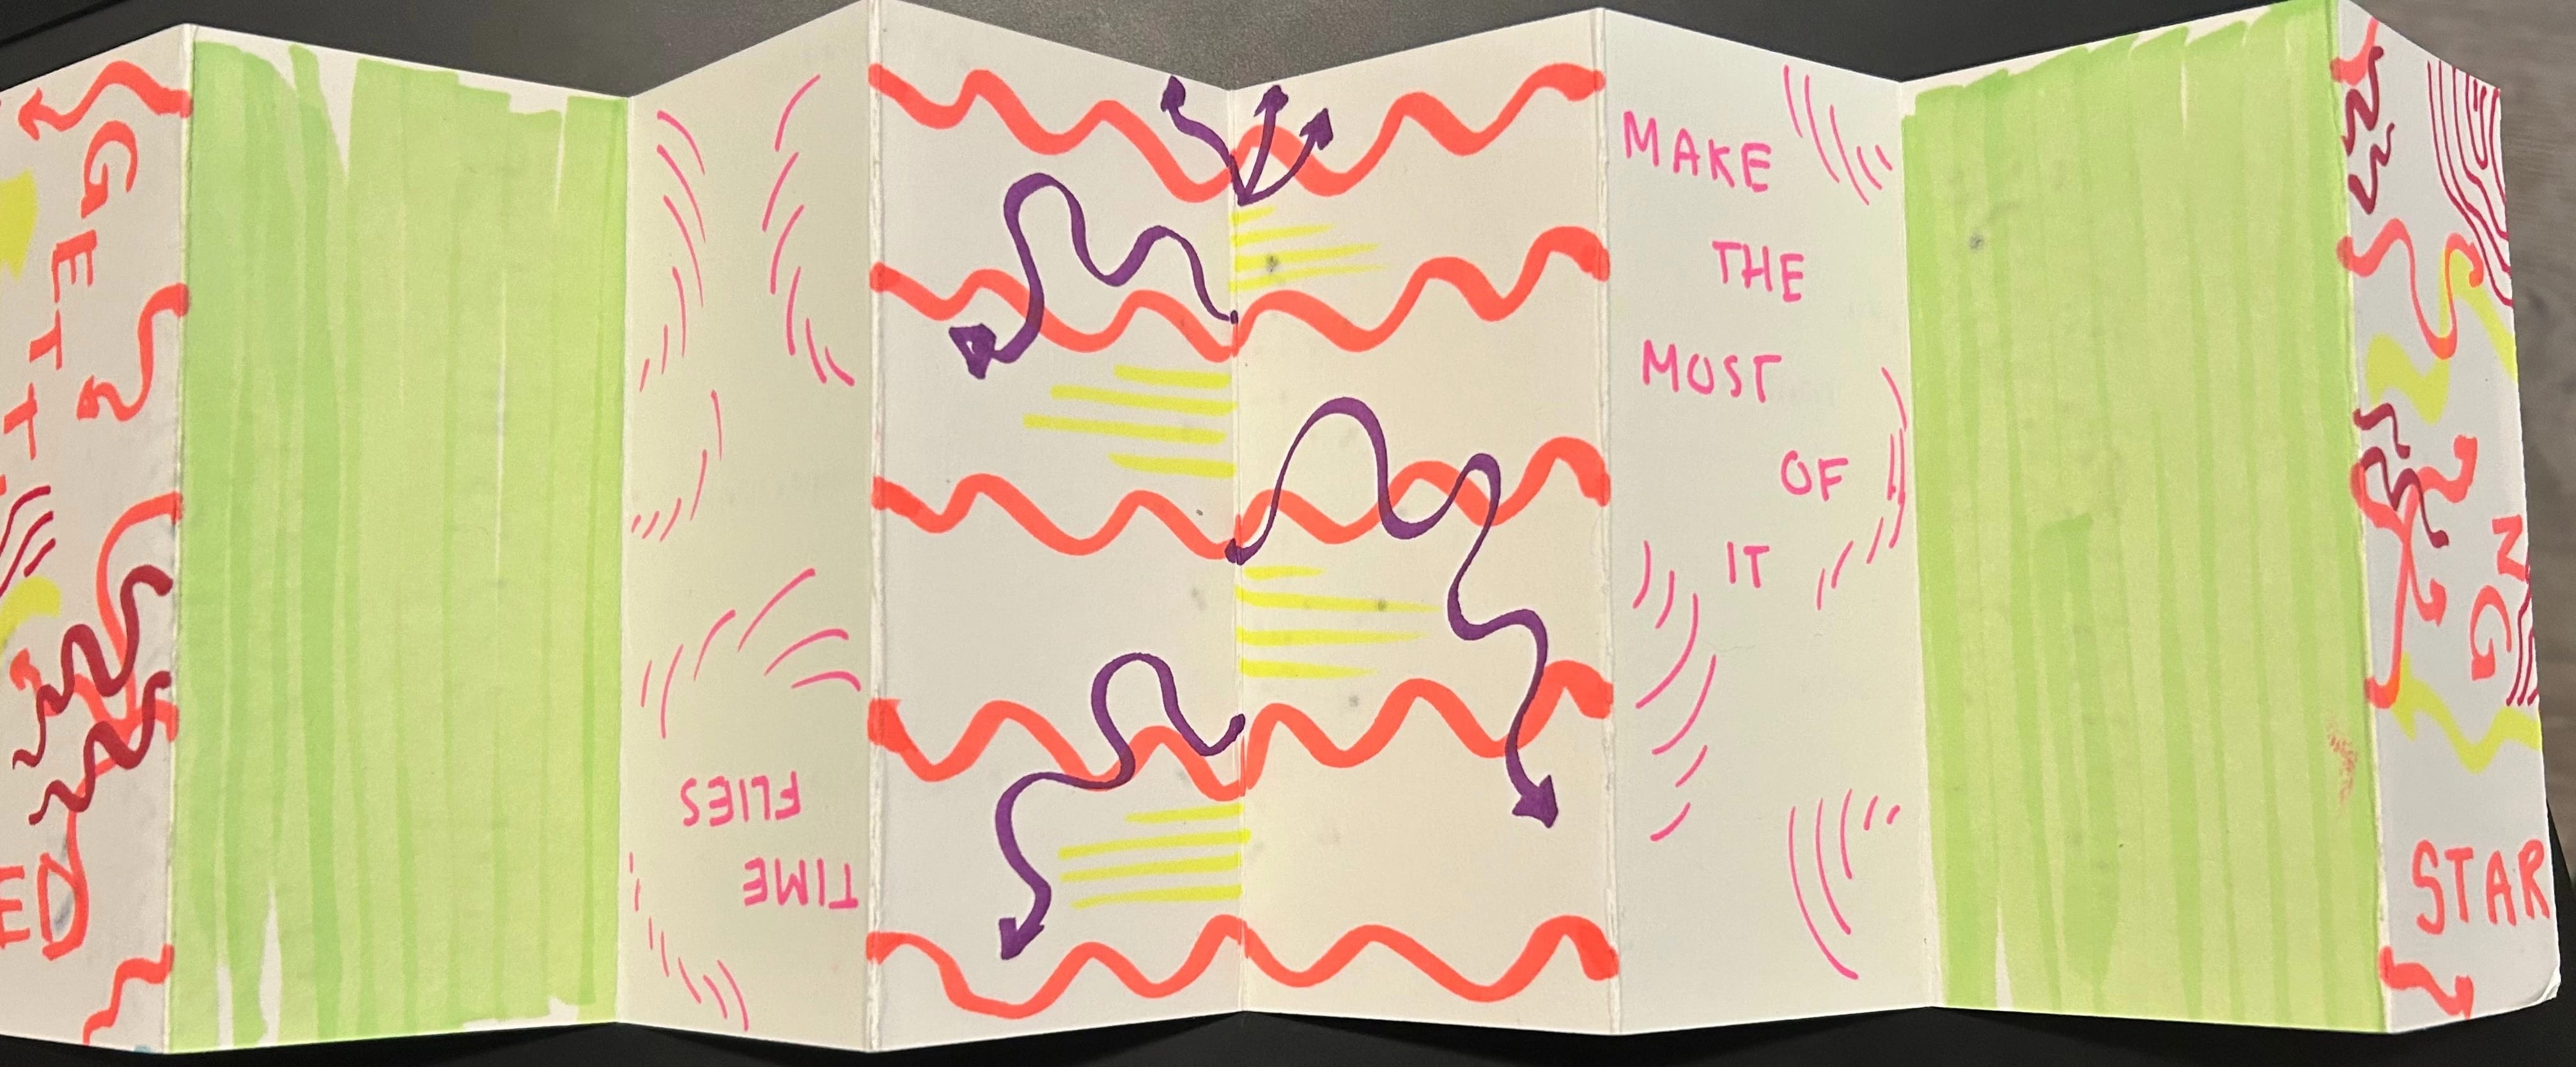 GETT
ED
TIME
FLIES
MAKE
THE
MOST
OF
IT
NG
STAR